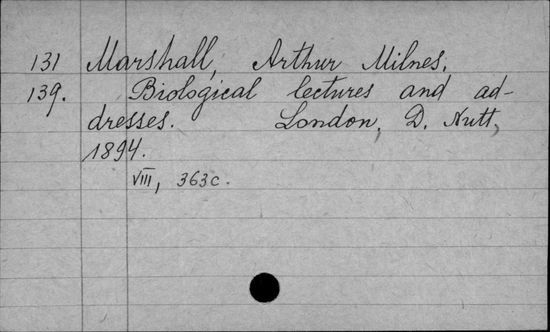 131 Marshall, Arthur Milnes.
139. Biological lectures and ad-
dresses. London, D. Nutt,
1894.
VIII, 363c.